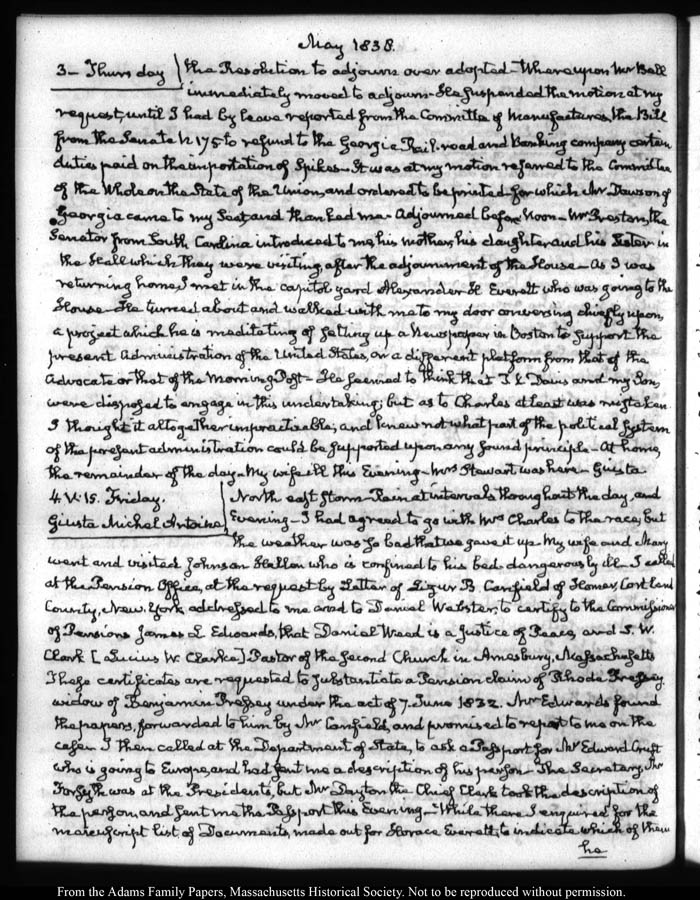 May 1838.
3 – Thursday
the Resolution to adjourn over adopted – Whereupon Mr Bell
immediately moved to adjourn – He suspended the motion at my
request, until I had by leave reported from the Committee of Manufactures, the Bill
from the Senate N 175 to refund to the Georgia Rail-road and Banking company certain
duties paid on the importation of Spikes – It was at my motion referred to the Committee
of the Whole on the State of the Union, and ordered to be printed for which Mr Dawson of
Georgia came to my Seat and thanked me – Adjourned before Noon – Mr Preston, the
Senator from South Carolina introduced to me, his mother, his daughter and his Sister in
the Hall which they were visiting, after the adjournment of the House – As I was
returning home, I met in the Capitol yard Alexander H Everett who was going to the
House – He turned about and walked with me to my door conversing chiefly upon,
a project which he is meditating of setting up a Newspaper in Boston to support the
present Administration of the United States, on a different platform from that of the
Advocate or that of the Morning Post – He seemed to think that J. Davis and my Son,
were disposed to engage in this undertaking; but as to Charles at least was mistaken
I thought it altogether impracticable; and knew not what part of the political System
of the present administration could be supported upon any sound principle – At home,
the remainder of the day – My wife ill this Evening – Mrs Stewart was here – Giusta
4. V:15. Friday.
Giusta Michel Antoine
North east Storm – Rain at intervals throughout the day, and
Evening – I had agreed to go with Mrs Charles to the race, but
the weather was so bad that we gave it up – My wife and Mary
went and visited Johnson Hellen who is confined to his bed dangerously ill – I called
at the Pension Office, at the request by Letter of B. Canfield of Homer, Cortland
County, New-York, addressed to me and to Daniel Webster, to certify to the Commissioner
of Pensions James L Edwards, that Daniel Weed is a Justice of Peace, and S. W.
Clark [Lucius W. Clarke] Pastor of the Second Church in Amesbury, Massachusetts
These certificates are requested to substantiate a Pension claim of Rhoda Pressey
widow of Benjamin Pressey under the act of 7. June 1832. Mr Edwards found
the papers, forwarded to him by Mr Canfield, and promised to report to me on the
case. I then called at the Department of State, to ask a Passport for Mr Edward Cruft
who is going to Europe, and had sent me a description of his person – The Secretary, Mr
Forsyth was at the Presidents, but Mr Dayton the Chief Clerk took the description of
the person, and sent me the Passport this Evening – While there I enquired for the
manuscript list of Documents, made out for Horace Everett, to indicate which of them
he
From the Adams Family Papers, Massachusetts Historical Society. Not to be reproduced without permission.